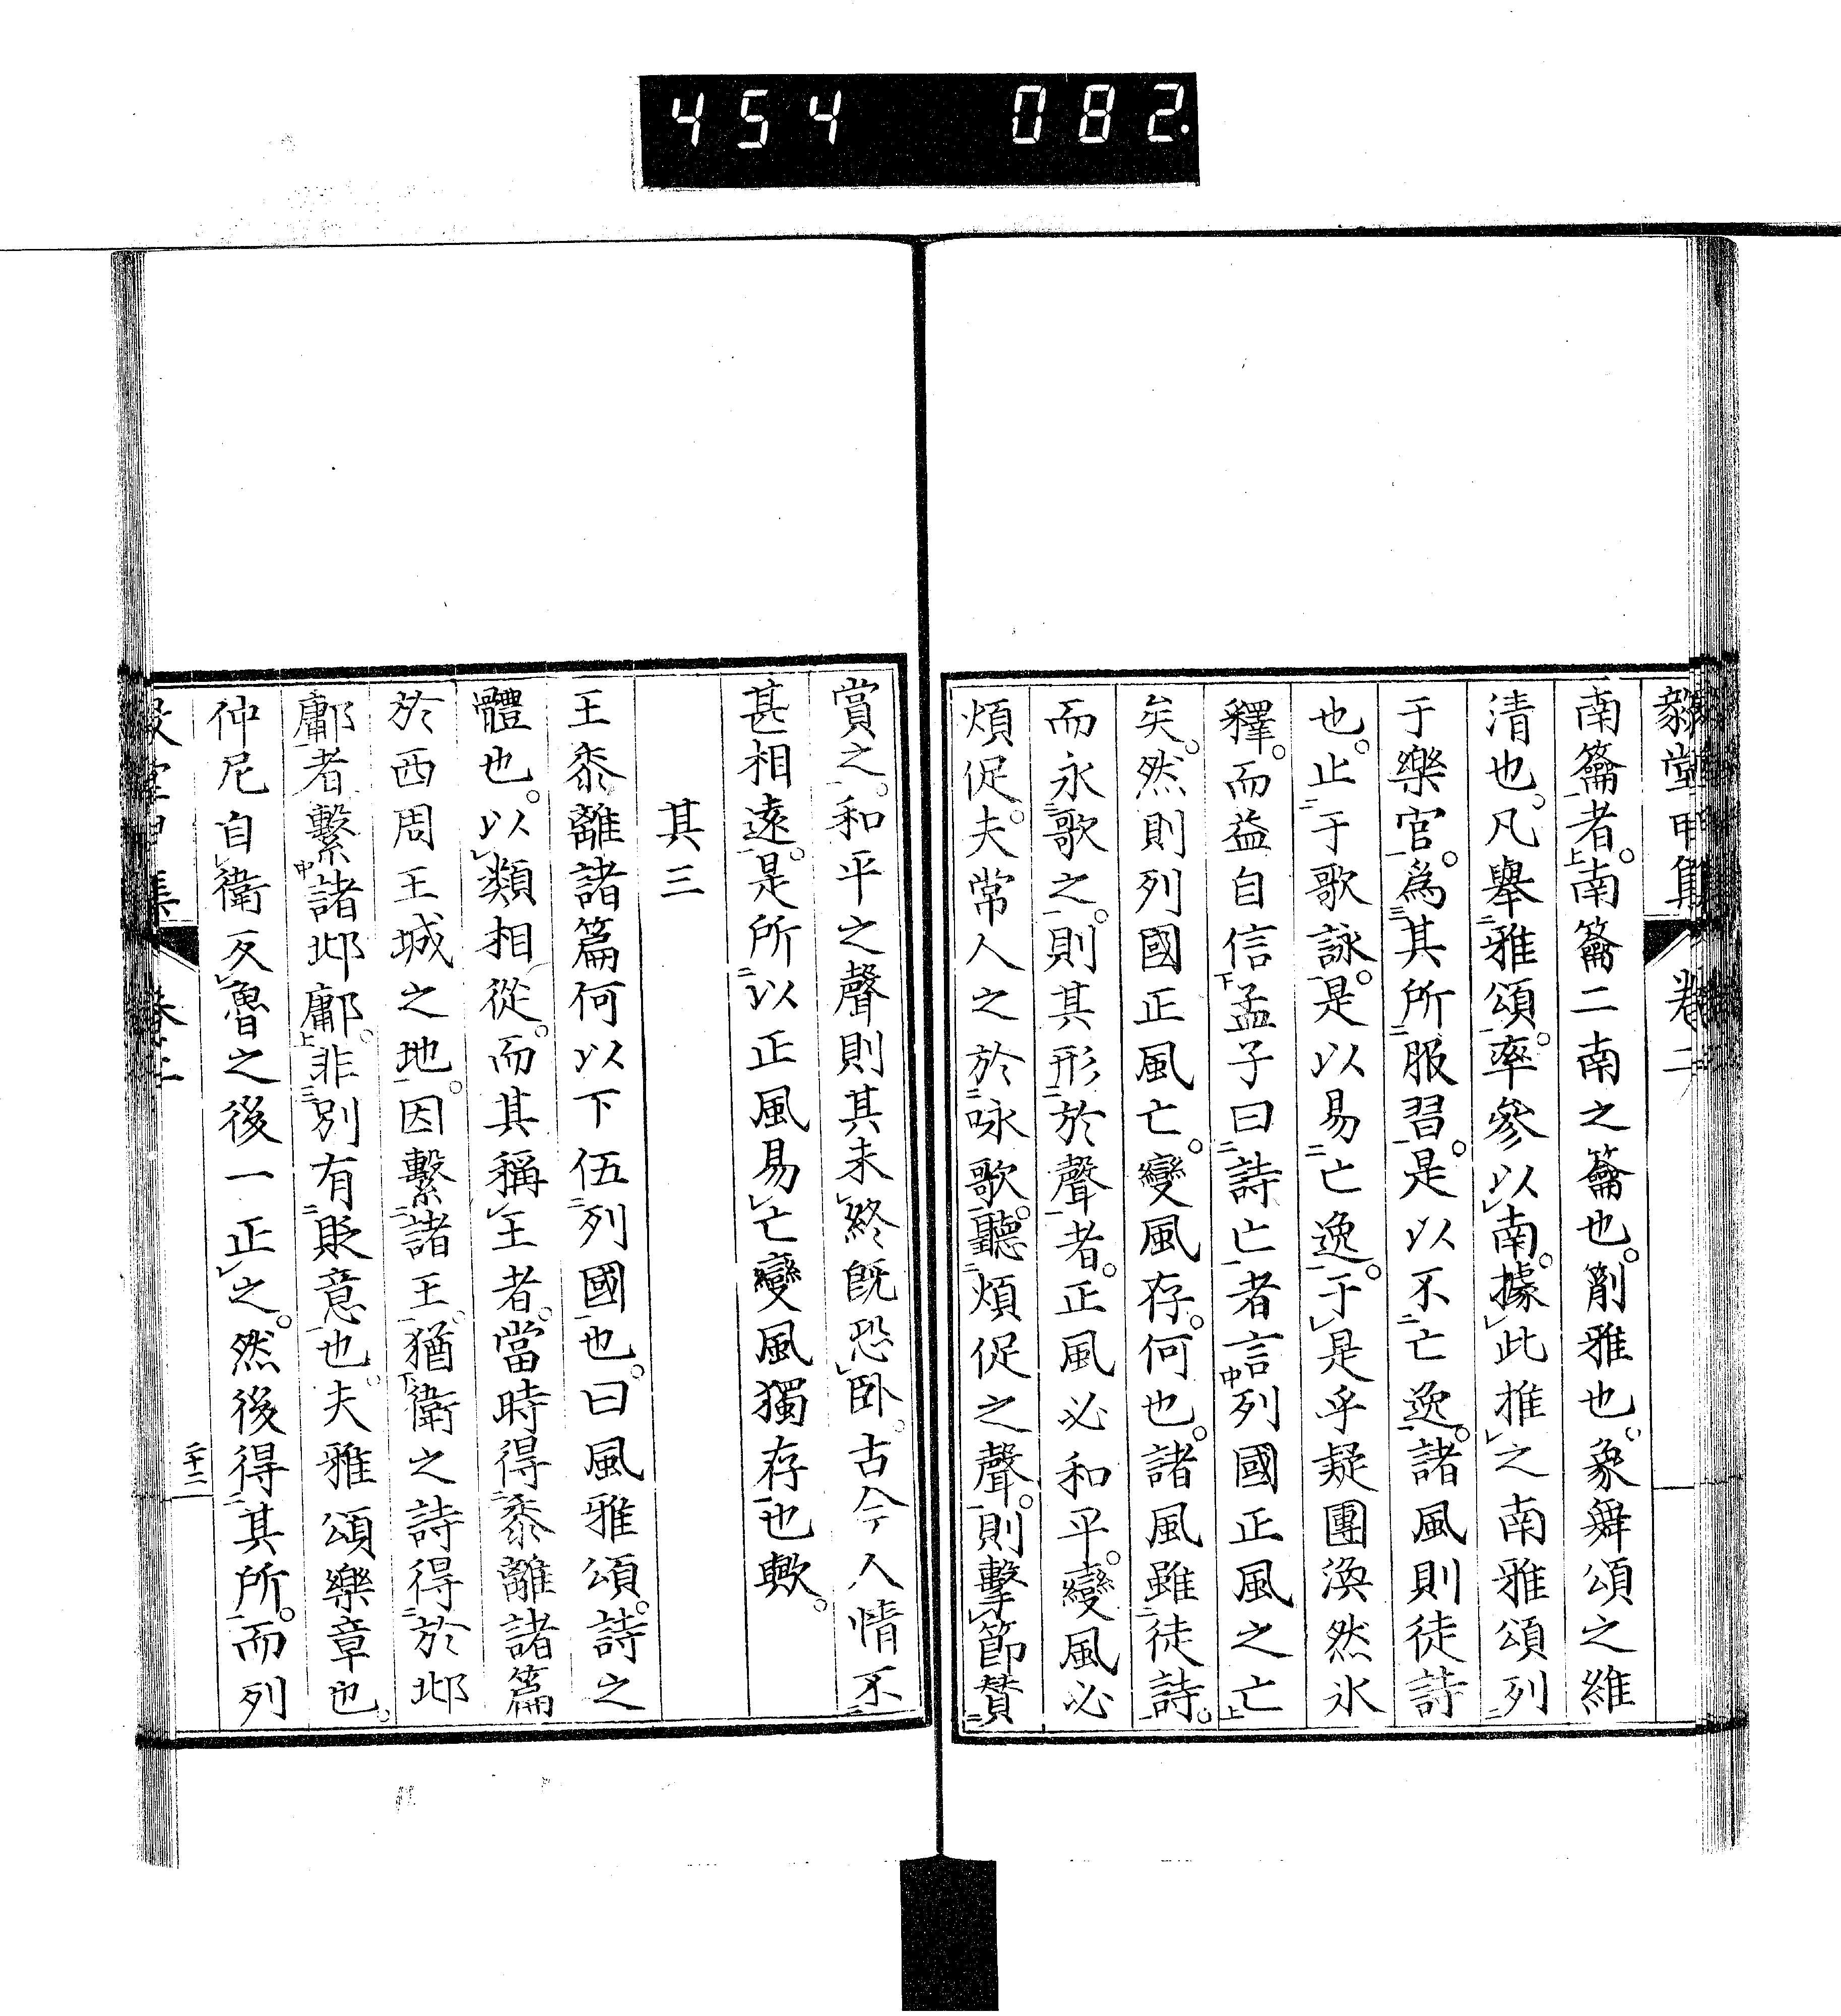 454 082.
毅堂甲集 卷二
南籥者。南籥二南之籥也。削雅也。象舞頌之維
清也。凡舉雅頌。率參以南。據此推之南雅頌列
于樂官。爲其所服習。是以不亡逸。諸風則徒詩
也。止于歌詠。是以易亡逸。于是乎疑團渙然氷
釋。而益自信孟子曰詩亡者言列國正風之亡
矣。然則列國正風亡。變風存。何也。諸風雖徒詩。
而永歌之。則其形於聲者。正風必和平。變風必
煩促。夫常人之於咏歌。聽煩促之聲。則擊節贊
賞之。和平之聲則其未終既恐卧。古今人情不
甚相遠。是所以正風易亡變風獨存也歟。
其三
王黍離諸篇何以下伍列國也。曰風雅頌。詩之
體也。以類相從。而其稱王者。當時得黍離諸篇
於西周王城之地。因繫諸王。猶衛之詩得於邶
鄘者繫諸邶鄘。非別有貶意也。夫雅頌樂章也。
仲尼自衛反魯之後一正之。然後得其所。而列
二十二